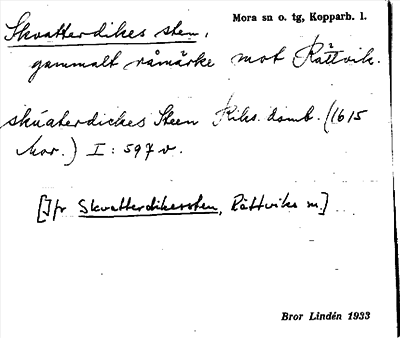 Mora sn o. tg, Kopparb. l.
Skvatterdikes sten,
gammalt råmärke mot Rättvik.
skúaterdickes Steen Riks. domb. (1615
Mor.) I: 597 v.
[Jfr Skvatterdikessten, Rättviks sn.]
Bror Lindén 1933